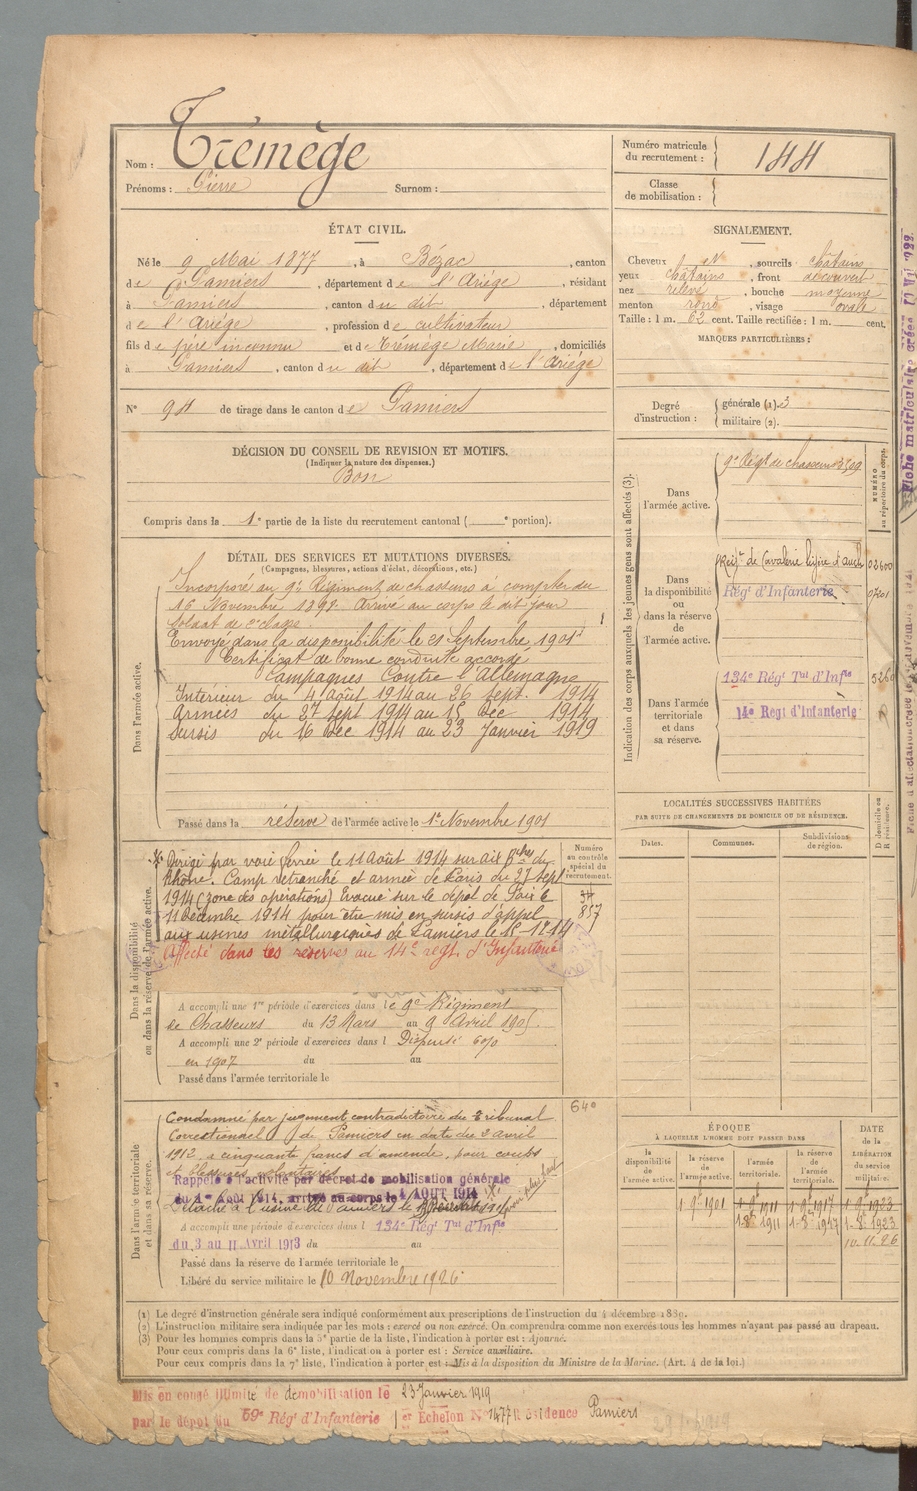 Nom : Trémège
Prénoms : Pierre Surnom :
Numéro matricule du recrutement : 144
Classe de mobilisation :
ÉTAT CIVIL.
Né le 9 Mai 1877, à Bézac, canton
de Pamiers, département de l'Ariège, résidant
à Pamiers, canton du dit, département
de l'Ariège, profession de cultivateur
fils de père inconnu et de Trémège Marie, domiciliés
à Pamiers, canton du dit, département de l'Ariège
N° 94 de tirage dans le canton de Pamiers
SIGNALEMENT.
Cheveux et sourcils châtains
yeux châtains, front découvert
nez relevé, bouche moyenne
menton rond, visage ovale
Taille : 1 m. 62 cent. Taille rectifiée : 1 m. cent.
MARQUES PARTICULIÈRES :
Degré d'instruction : générale (1). 3
militaire (2).
DÉCISION DU CONSEIL DE REVISION ET MOTIFS.
(Indiquer la nature des dispenses.)
Bon
Compris dans la 1e partie de la liste du recrutement cantonal ( e portion).
DÉTAIL DES SERVICES ET MUTATIONS DIVERSES.
(Campagnes, blessures, actions d'éclat, décorations, etc.)
Dans l'armée active.
Incorporé au 9e Régiment de chasseurs à compter du
16 Novembre 1898. Arrivé au corps le dit jour
soldat de 2e classe.
Envoyé dans la disponibilité le 21 Septembre 1901
Certificat de bonne conduite accordé
Campagnes Contre l'Allemagne
Intérieur du 4 Août 1914 au 26 sept. 1914
Armées du 27 sept 1914 au 15 Déc 1914
Sursis du 16 Déc 1914 au 23 Janvier 1919
Passé dans la réserve de l'armée active le 1er Novembre 1901
Indication des corps auxquels les jeunes gens sont affectés (3).
NUMÉRO au répertoire du corps.
Dans l'armée active.
9e Régt de chasseurs
Dans la disponibilité ou dans la réserve de l'armée active.
Régt de Cavalerie légère d'Auch 03600
Régt d'Infanterie
Dans l'armée territoriale et dans sa réserve.
134e Régt Tal d'Infie
14e Regt d'Infanterie
LOCALITÉS SUCCESSIVES HABITÉES
PAR SUITE DE CHANGEMENTS DE DOMICILE OU DE RÉSIDENCE.
Dates. Communes. Subdivisions de région. D domicile ou R résidence.
Dans la disponibilité ou dans la réserve de l'armée active.
Numéro au contrôle spécial du recrutement.
857
Dirigé par voie ferrée le 11 Août 1914 sur Aix Bches du
Rhône. Camp retranché et armée de Paris du 27 sept
1914 (zone des opérations) Evacué sur le dépôt de Foix le
11 Décembre 1914 pour être mis en sursis d'appel
aux usines métallurgiques de Pamiers le 15-12-14
Affecté dans les réserves au 14e regt d'Infanterie
A accompli une 1re période d'exercices dans le 9e Régiment
de Chasseurs du 13 Mars au 9 Avril 1905.
A accompli une 2e période d'exercices dans l Dispensé 6%
en 1907 du au
Passé dans l'armée territoriale le
Dans l'armée territoriale et dans sa réserve.
640
Condamné par jugement contradictoire du Tribunal
Correctionnel de Pamiers en date du 2 avril
1912, à cinquante francs d'amende, pour coups
et blessures volontaires
Rappelé à l'activité par décret de mobilisation générale
du 1er Août 1914, arrivé au corps le 4 AOUT 1914
Détaché à l'usine de Pamiers le
A accompli une période d'exercices dans l 134e Régt Tal d'Infie
du 3 au 11 Avril 1913 du au
Passé dans la réserve de l'armée territoriale le
Libéré du service militaire le 10 Novembre 1926
ÉPOQUE
À LAQUELLE L'HOMME DOIT PASSER DANS
la disponibilité de l'armée active. la réserve de l'armée active. l'armée territoriale. la réserve de l'armée territoriale.
DATE de la LIBÉRATION du service militaire.
1 9bre 1901 1 9bre 1911 1 9bre 1917 1 9bre 1923
1-8bre 1911 1-8bre 1917 1-8bre 1923
10.11.26
(1) Le degré d'instruction générale sera indiqué conformément aux prescriptions de l'instruction du 4 décembre 1889.
(2) L'instruction militaire sera indiquée par les mots : exercé ou non exercé. On comprendra comme non exercés tous les hommes n'ayant pas passé au drapeau.
(3) Pour les hommes compris dans la 5e partie de la liste, l'indication à porter est : Ajourné.
Pour ceux compris dans la 6e liste, l'indication à porter est : Service auxiliaire.
Pour ceux compris dans la 7e liste, l'indication à porter est : Mis à la disposition du Ministre de la Marine. (Art. 4 de la loi.)
Mis en congé illimité de démobilisation le 23 Janvier 1919
par le dépôt du 59e Régt d'Infanterie 1er Echelon N° 1477 Résidence Pamiers